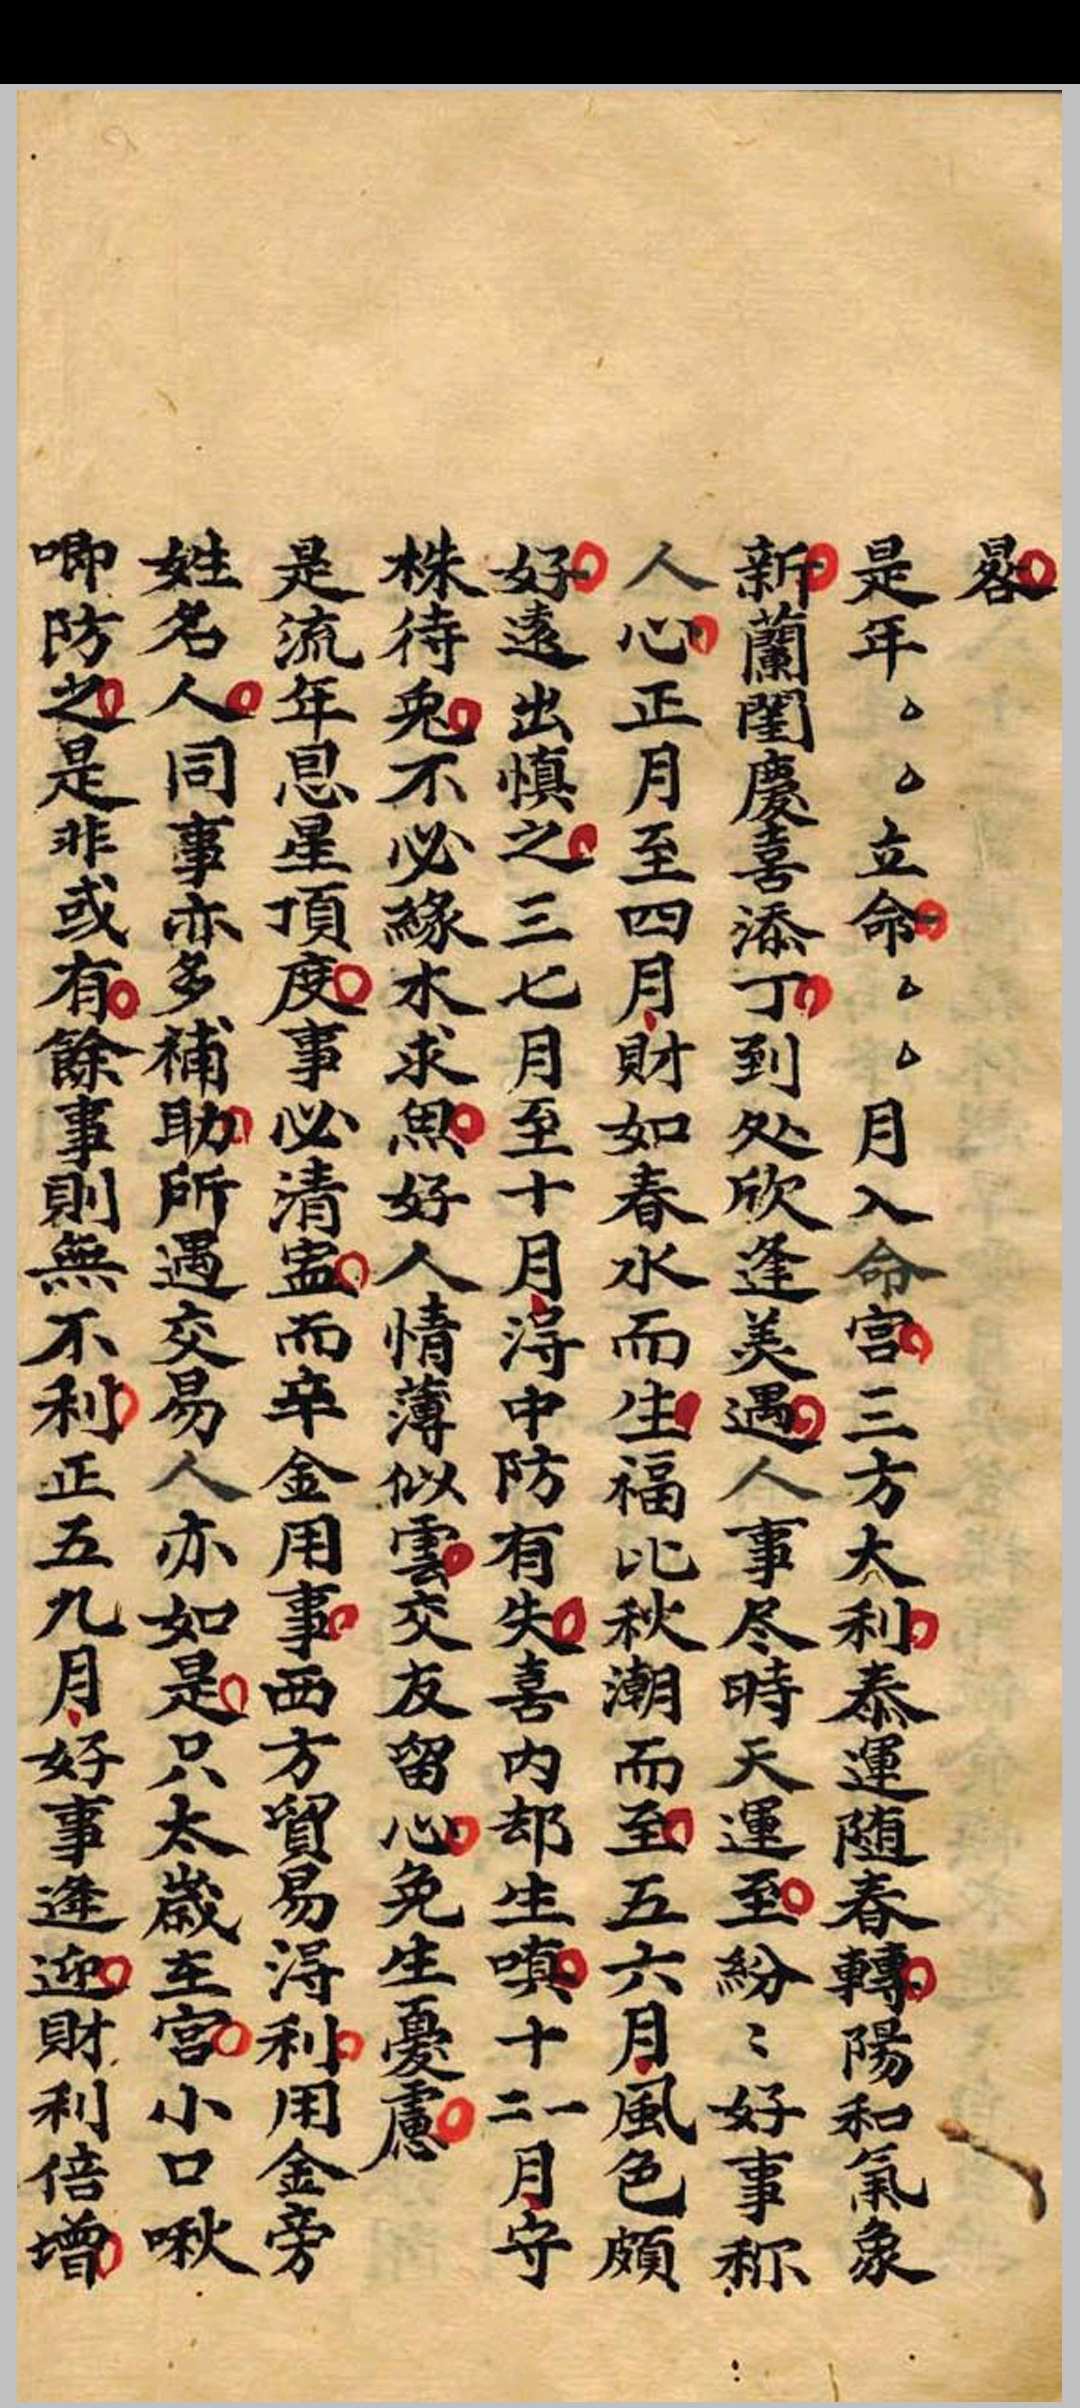 畧
是年。。立命。。月入命宫三方大利泰運随春轉陽和氣象
新蘭閨慶喜添丁到处欣逢美遇人事尽時天運至紛〻好事称
人心正月至四月財如春水而生福比秋潮而至五六月風色頗
好遠出慎之三七月至十月淂中防有失喜内却生嗔十一二月守
株待兎不必緣水求魚好人情薄似雲交友留心免生憂慮
是流年恩星頂度事必清盅而卒金用事西方貿易淂利用金旁
姓名人同事亦多補助所遇交易人亦如是只太歲在宫小口啾
唧防之是非或有餘事則無不利正五九月好事逢迎財利倍增